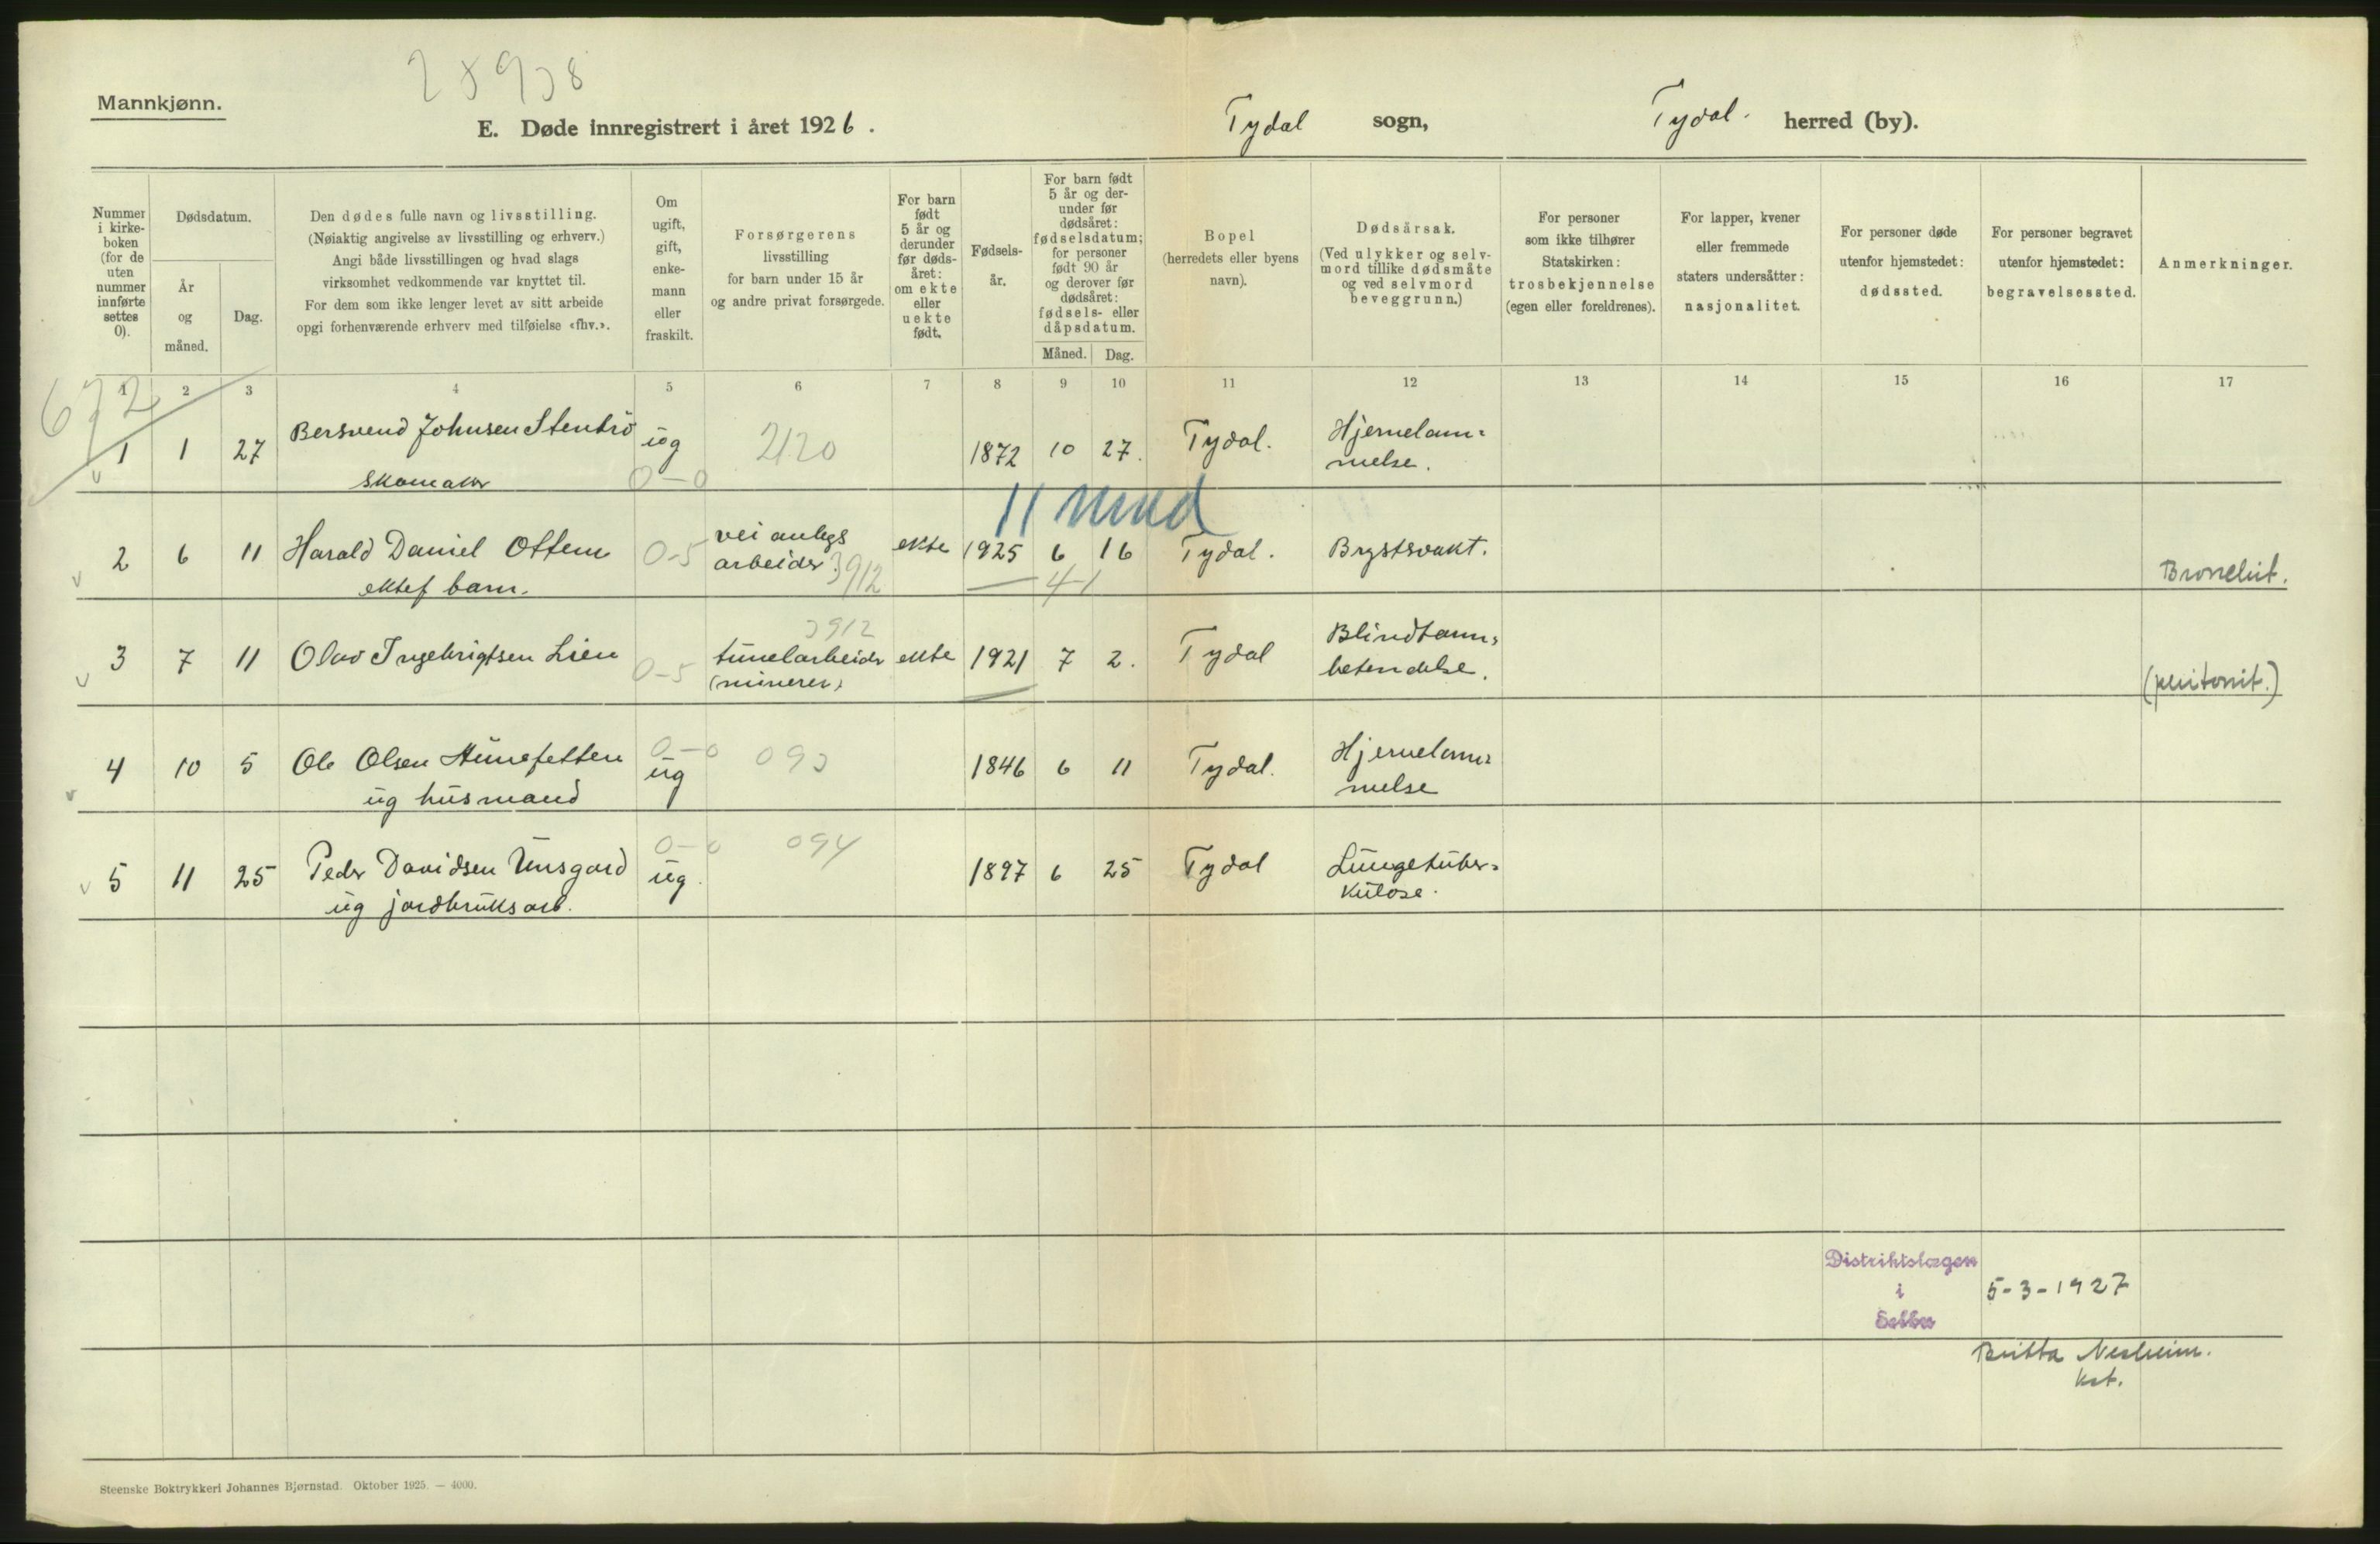 28938
Mannkjønn.
E. Døde innregistrert i året 1926.
Tydal sogn,
Tydal. herred (by).
Nummer
i kirke-
boken
(for de
uten
nummer
innførte
settes
0).
Dødsdatum.
År
og
måned.
Dag.
Den dødes fulle navn og livsstilling.
(Nøiaktig angivelse av livsstilling og erhverv.)
Angi både livsstillingen og hvad slags
virksomhet vedkommende var knyttet til.
For dem som ikke lenger levet av sitt arbeide
opgi forhenværende erhverv med tilføielse «fhv.».
Om
ugift,
gift,
enke-
mann
eller
fraskilt.
Forsørgerens
livsstilling
for barn under 15 år
og andre privat forsørgede.
For barn
født
5 år og
derunder
før døds-
året:
om ekte
eller
uekte
født.
Fødsels-
år.
For barn født
5 år og der-
under før
dødsåret:
fødselsdatum;
for personer
født 90 år
og derover før
dødsåret:
fødsels- eller
dåpsdatum.
Måned. Dag.
Bopel
(herredets eller byens
navn).
Dødsårsak.
(Ved ulykker og selv-
mord tillike dødsmåte
og ved selvmord
beveggrunn.)
For personer
som ikke tilhører
Statskirken:
trosbekjennelse
(egen eller foreldrenes).
For lapper, kvener
eller fremmede
staters undersåtter:
nasjonalitet.
For personer døde
utenfor hjemstedet:
dødssted.
For personer begravet
utenfor hjemstedet:
begravelsessted.
Anmerkninger.
1 2 3 4 5 6 7 8 9 10 11 12 13 14 15 16 17
672
1 1 27 Bersvend Johnsen Stentrö ug 2120 1872 10 27. Tydal. Hjernelam=
v skomaker 0-0 melse.
11 mnd
2 6 11 Harald Daniel Ottem 0-5 veianlegs ekte 1925 6 16 Tydal. Brystsvakt.
arbeider. 3912
v ektef barn. 4-1 Bronchit.
3912
3 7 11 Olav Ingebrigtsen Lien 0-5 tunelarbeider ekte 1921 7 2. Tydal Blindtarm=
v (minerer) betendelse. (peritonit.)
4 10 5 Ole Olsen Hunefetten 0-0 093 1846 6 11 Tydal. Hjernelam=
v ug husmand ug melse
5 11 25 Peder Davidsen Unsgard 0-0 094 1897 6 25 Tydal Lungetuber=
v ug jordbruksarb. ug. kulose.
Distriktslægen
i
Selbu
5-3-1927
Britta Nesheim.
kst.
Steenske Boktrykkeri Johannes Bjørnstad. Oktober 1925. — 4000.